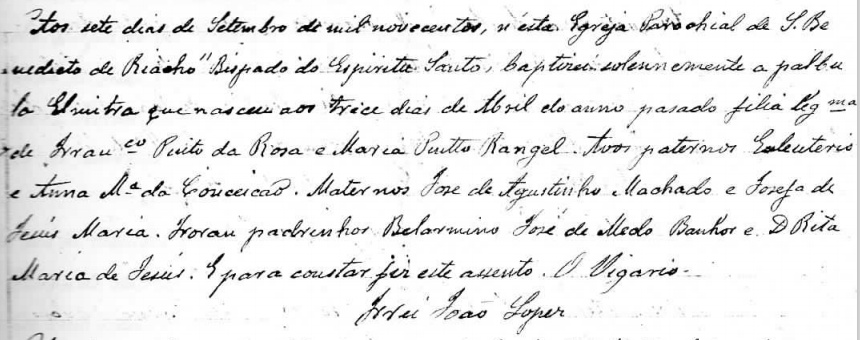 Aos sete dias de Setembro de mil novecentos, n'esta Egreja Parochial de S. Be
nedicto de Riacho" Bispado do Espirito Santo, baptizei solennemente a
Elmitra que nasceu aos treze dias de Abril do anno passado filia leg ma
de Fran co Pinto da Rosa e Maria Pinto Rangel. Avos paternos Euleuterio
e Anna Mª da Conceicão. Maternos Jose de Agustinho Machado e Josefa de
Jesús Maria. Foran padrinhos Belarmino José de Medo Banhos e D Rita
Maria de Jesús. E para constar fiz este assento. O Vigario-
Frei João Lopez